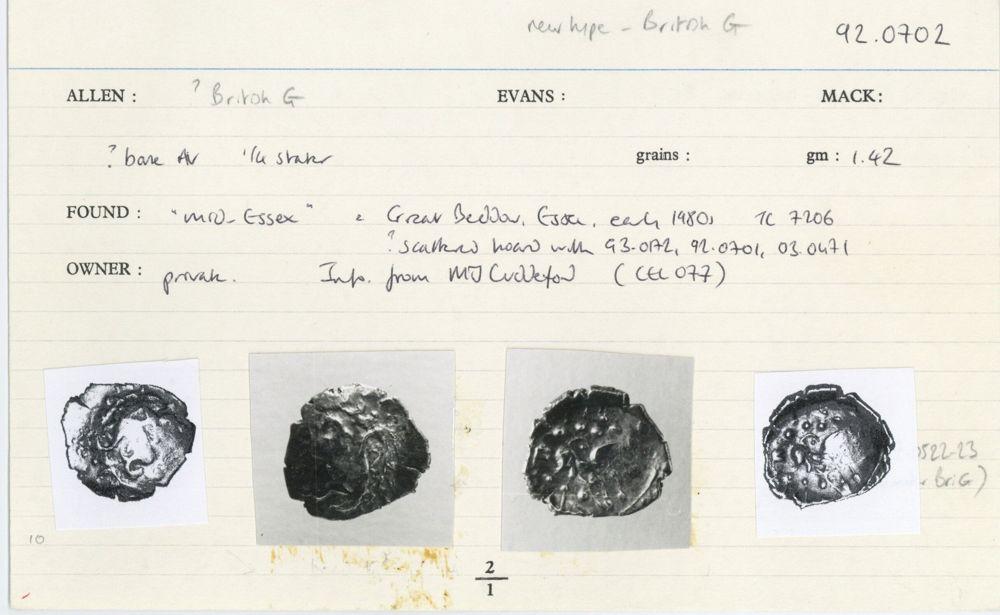 new type - British G 92.0702
ALLEN : ? British G EVANS : MACK:
? base AV 1/4 stater grains : gm : 1.42
FOUND : "mid-Essex" = Great Beddow, Essex, early 1980s TC 7206
? scattered hoard with 93.0172, 92.0701, 03.0471
OWNER : private. Info. from MJ Cuddeford (CEL 077)
0522-23
Bri G)
10
2
1